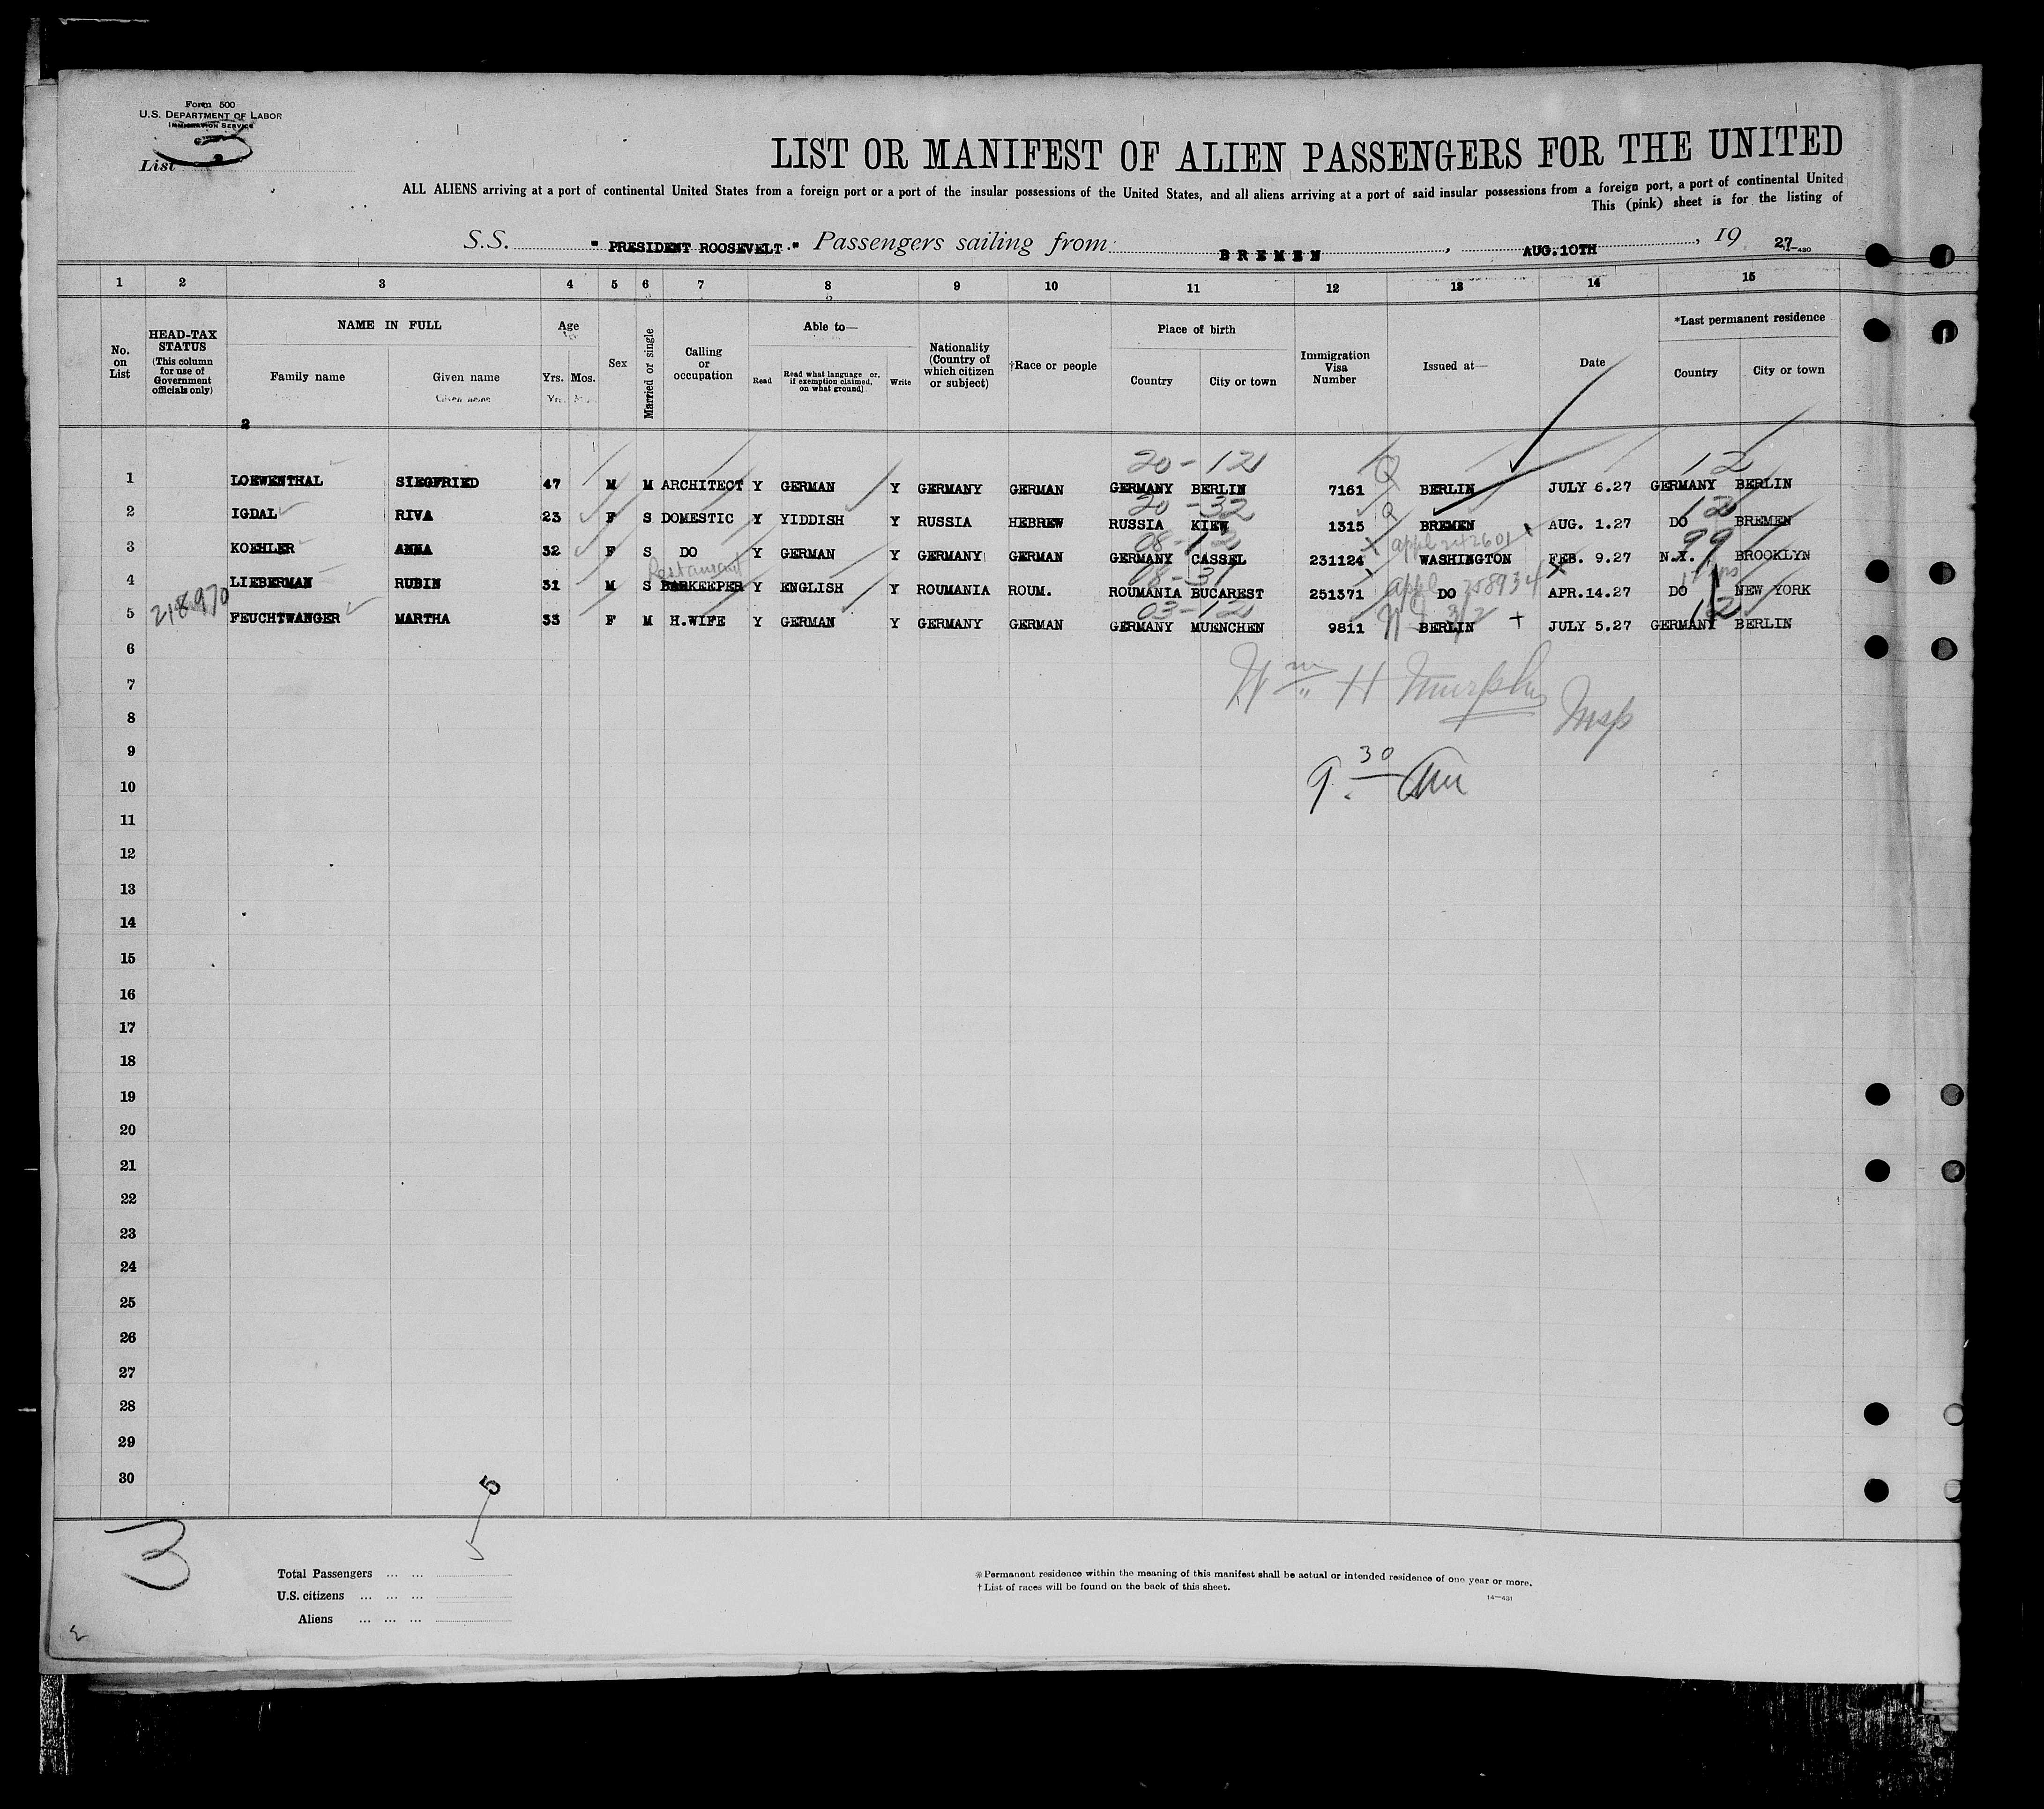 Form 500
U.S. DEPARTMENT OF LABOR
IMMIGRATION SERVICE
List
LIST OR MANIFEST OF ALIEN PASSENGERS FOR THE UNITED
ALL ALIENS arriving at a port of continental United States from a foreign port or a port of the insular possessions of the United States, and all aliens arriving at a port of said insular possessions from a foreign port, a port of continental United
This (pink) sheet is for the listing of
S.S. " PRESIDENT ROOSEVELT." Passengers sailing from BREMEN, AUG.10TH, 19 27
14-430
1 2 3 4 5 6 7 8 9 10 11 12 13 14 15
No. on List
HEAD-TAX STATUS (This column for use of Government officials only)
NAME IN FULL
Family name Given name
Given name
Age
Yrs. Mos.
Sex
Married or single
Calling or occupation
Able to—
Read
Read what language or, if exemption claimed, on what ground
Write
Nationality (Country of which citizen or subject)
†Race or people
Place of birth
Country City or town
Immigration Visa Number
Issued at—
Date
*Last permanent residence
Country City or town
2
20-12 Q 12
1 LOEWENTHAL SIEGFRIED 47 M M ARCHITECT Y GERMAN Y GERMANY GERMAN GERMANY BERLIN 7161 BERLIN JULY 6.27 GERMANY BERLIN
20-32 Q 12
2 IGDAL RIVA 23 F S DOMESTIC Y YIDDISH Y RUSSIA HEBREW RUSSIA KIEW 1315 BREMEN AUG. 1.27 DO BREMEN
08-12 appl 242601 99
3 KOEHLER ANNA 32 F S DO Y GERMAN Y GERMANY GERMAN GERMANY CASSEL 231124 WASHINGTON FEB. 9.27 N.Y. BROOKLYN
Restaurant 08-31 appl 258934
4 LIEBERMAN RUBIN 31 M S BARKEEPER Y ENGLISH Y ROUMANIA ROUM. ROUMANIA BUCAREST 251371 DO APR.14.27 DO NEW YORK
218970 03-12 3/2 12
5 FEUCHTWANGER MARTHA 33 F M H.WIFE Y GERMAN Y GERMANY GERMAN GERMANY MUENCHEN 9811 BERLIN JULY 5.27 GERMANY BERLIN
6
Wm H Murphy
7
Insp
8
9
9.30 Am
10
11
12
13
14
15
16
17
18
19
20
21
22
23
24
25
26
27
28
29
30
5
5
3
Total Passengers ... ...
U.S. citizens ... ... ...
Aliens ... ... ...
*Permanent residence within the meaning of this manifest shall be actual or intended residence of one year or more.
†List of races will be found on the back of this sheet.
14-431
2